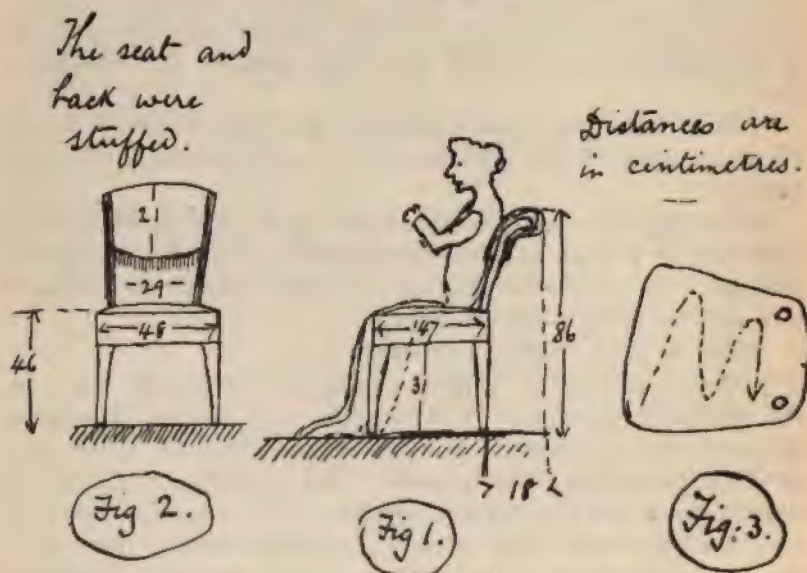 The seat and
back were
stuffed.
Distances are
in centimetres.
21
29
48
46
47
31
86
18
Fig 2.
Fig 1.
Fig: 3.